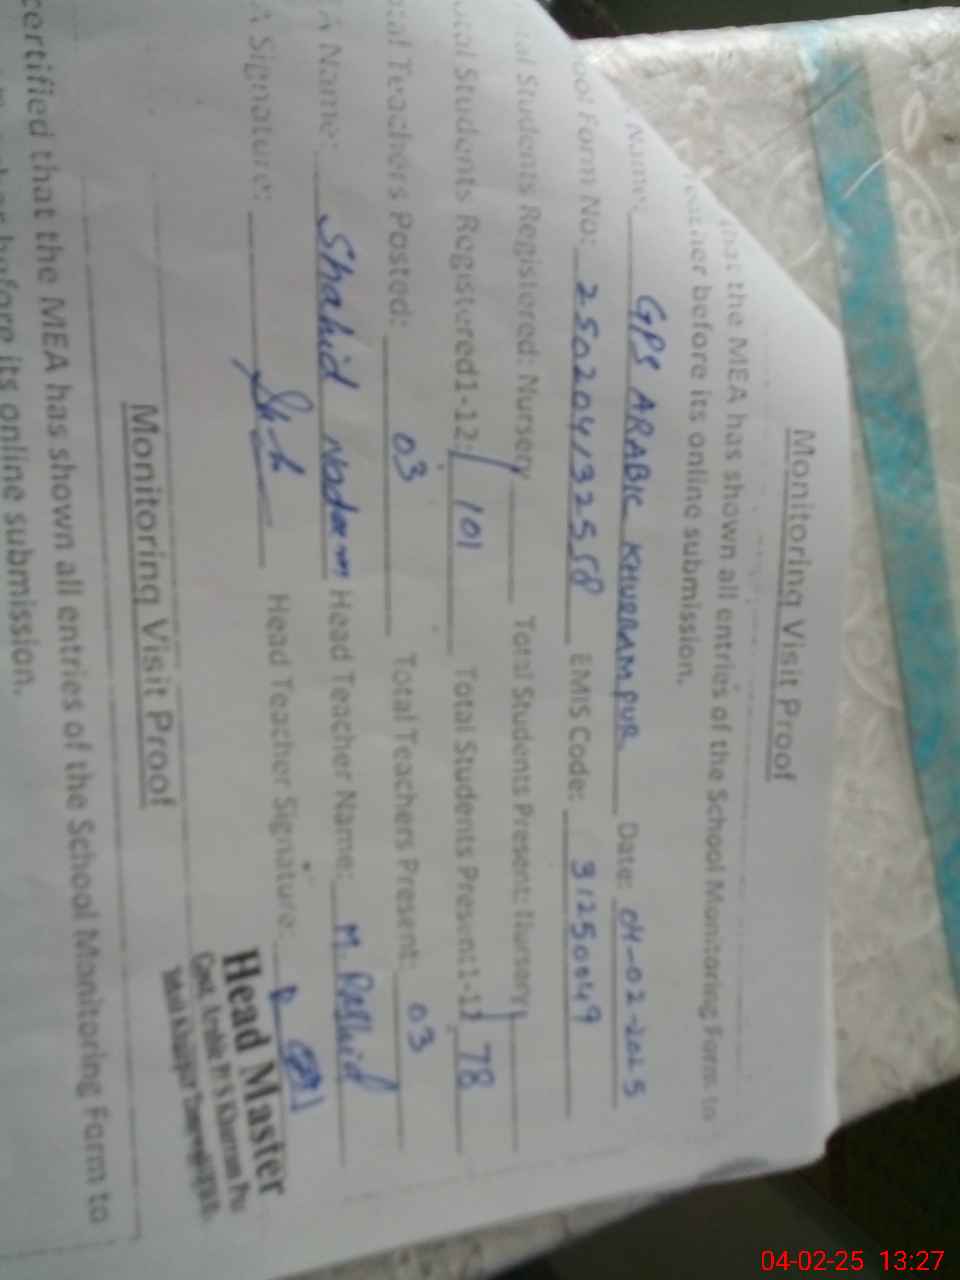 Monitoring Visit Proof
that the MEA has shown all entries of the School Monitoring Form to
before its online submission.
Name: GPS ARABIC KHURRAMPUR Date: 04-02-2025
Form No: 250204132558 EMIS Code: 31250049
Students Registered: Nursery Total Students Present: Nursery
Students Registered1-12: 101 Total Students Present1-12 78
Teachers Posted: 03 Total Teachers Present: 03
Name: Shahid Nadeem Head Teacher Name: M. Rashid
Signature: Head Teacher Signature:
Head Master
Govt. Arabic Pr S Khurram Pur
Monitoring Visit Proof
certified that the MEA has shown all entries of the School Monitoring Form to
before its online submission.
04-02-25 13:27